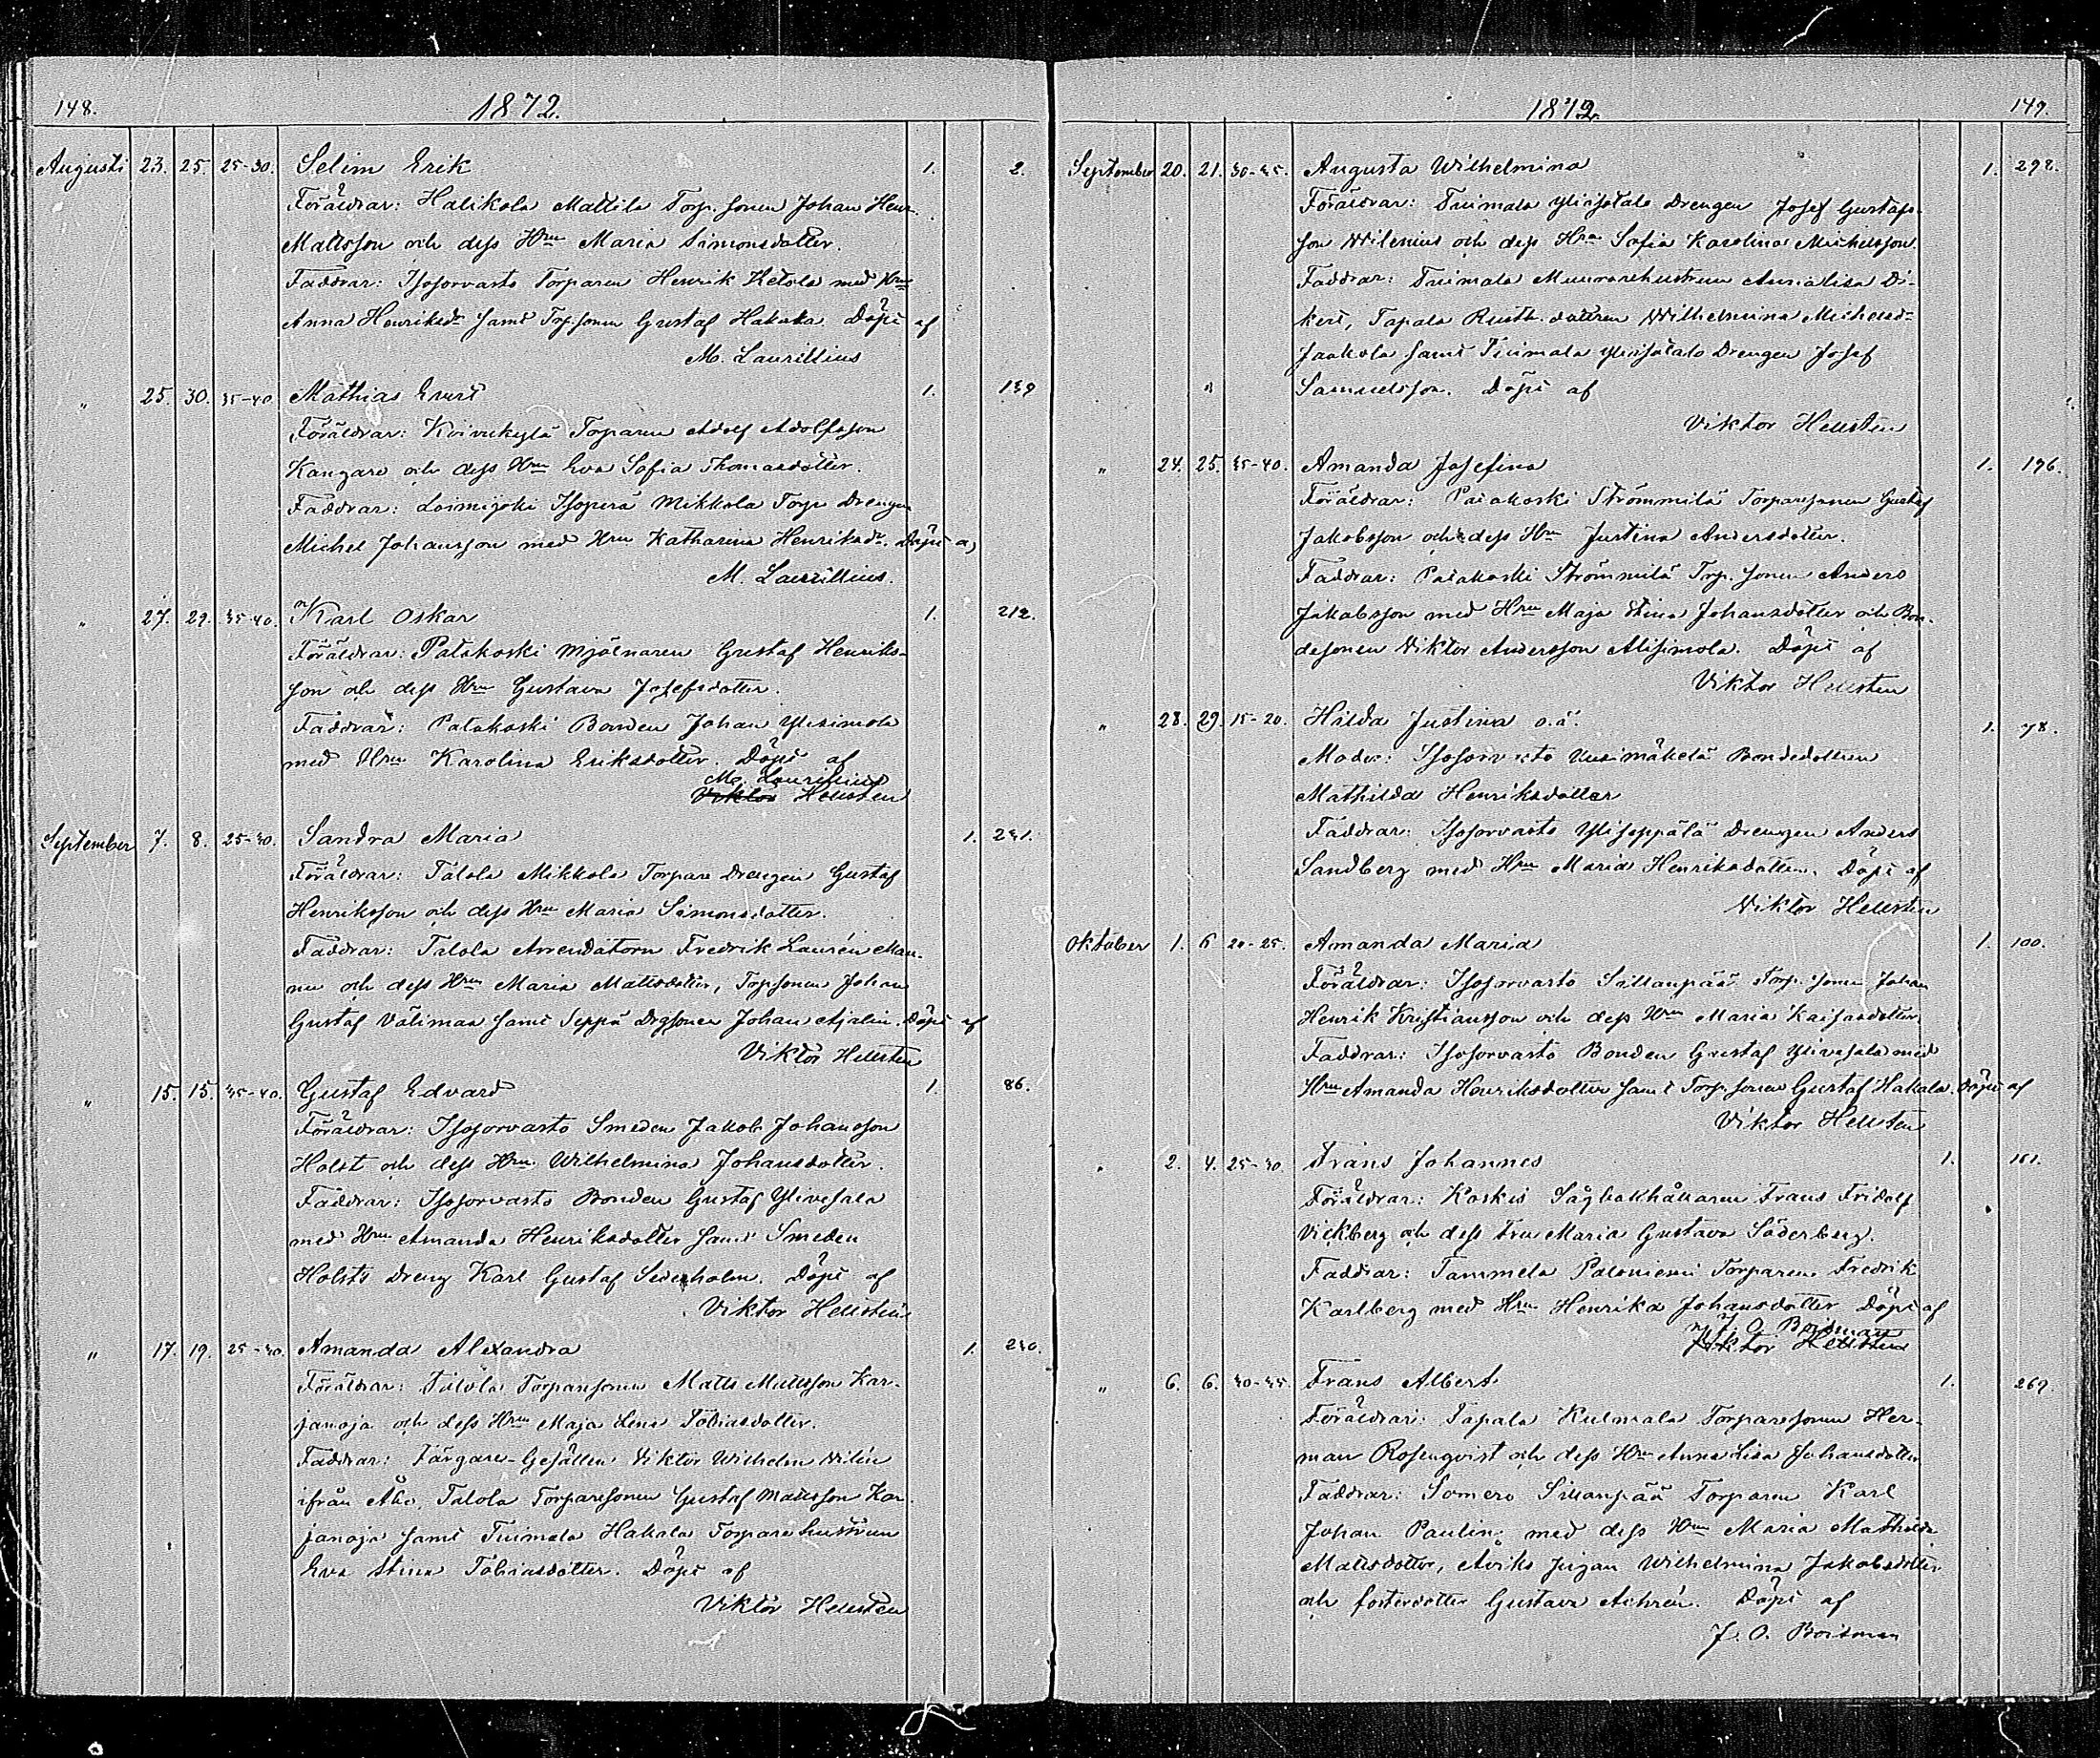 148.
1872.
Augusti 23. 25. 25-30. Selim Erik 1. 2.
Föräldrar: Halikola Mattila Torp. sonen Johan Henr.
Mattsson och dess Hru Maria Simonsdotter.
Faddrar: Isosorvasto Torparen Henrik Ketola med Hru
Anna Henriksdr samt Torp. sonen Gustaf Hakala. Döpt af
M. Laurillius
" 25. 30. 35-40 Mathias Evert 1. 139
Föräldrar: Koivukylä Torparen Adolf Adolfsson
Kangare och dess Hru Eva Sofia Thomasdotter.
Faddrar: Loimijoki Isoperä Mikkola Torp. Drengen
Michel Johansson med Hru Katharina Henriksdr. Döpt af
M. Laurillius.
" 27. 29. 35-40. Karl Oskar 1. 212.
Föräldrar: Patakoski Mjölnaren Gustaf Henriks-
son och dess Hru Gustava Josefsdotter.
Faddrar: Patakoski Bonden Johan Ylisimola
med Hru Karolina Eriksdotter. Döpt af
M. Laurillius
Viktor Hellsten
September 7. 8. 25-30. Sandra Maria 1. 231.
Föräldrar: Talola Mikkola Torpare Drengen Gustaf
Henriksson och dess Hru Maria Simonsdotter.
Faddrar: Talola Arrendatorn Fredrik Laurén Man-
nu och dess Hru Maria Mattsdotter, Torpsonen Johan
Gustaf Välimaa samt Seppä Drgsonen Johan Ajalin. Döpt af
Viktor Hellsten
" 15. 15. 35-40. Gustaf Edvard 1. 86.
Föräldrar: Isosorvasto Smeden Jakob Johansson
Holst och dess Hru Wilhelmina Johansdotter.
Faddrar: Isosorvasto Bonden Gustaf Ylivesala
med Hru Amanda Henriksdotter samt Smeden
Holsts Dreng Karl Gustaf Sederholm. Döpt af
Viktor Hellsten
" 17. 19. 25-30. Amanda Alexandra 1. 230.
Föräldrar: Talola Torparesonen Matts Mattsson Kar-
janoja och dess Hru Maja Lena Tobiasdotter.
Faddrar: Färgare-Gesällen Viktor Wilhelm Nilén
ifrån Åbo, Talola Torparesonen Gustaf Mattsson Kar-
janoja samt Tuimala Hakala Torpare hustrun
Eva Stina Tobiasdotter. Döpt af
Viktor Hellsten
1872.
149.
September 20. 21. 30-35. Augusta Wilhelmina 1. 298.
Föräldrar: Tuimala Ylisjotalo Drengen Josef Gustafs-
son Wilenius och dess Hru Sofia Karolina Michelsson.
Faddrar: Tuimala Muurarehustrun Annalisa
Tapala Rusth. dottren Wilhelmina Michelsdr
Jaakola samt Tuimala Drengen Josef
Samuelsson. Döpt af
Viktor Hellsten
" 24. 25. 35-40. Amanda Josefina 1. 196.
Föräldrar: Patakoski Strömmilä Torparesonen Gustaf
Jakobsson och dess Hru Justina Andersdotter.
Faddrar: Patakoski Strömmilä Torp. sonen Anders
Jakobsson med Hru Maja Stina Johansdotter och Bon-
desonen Viktor Andersson Alisimola. Döpt af
Viktor Hellsten
" 28. 29. 15-20. Hilda Justina o.ä. 1. 78.
Moder: Isosorvasto Uusimäkelä Bondedottren
Mathilda Henriksdotter
Faddrar: Isosorvasto Yliseppälä Drengen Anders
Sandberg med Hru Maria Henriksdotter. Döpt af
Viktor Hellsten
Oktober 1. 6 20-25. Amanda Maria 1. 100.
Föräldrar: Isosorvasto Sillanpää Torp. sonen Johan
Henrik Kristiansson och dess Hru Maria Kaisasdotter
Faddrar: Isosorvasto Bonden Gustaf Ylivesala med
Hru Amanda Henriksdotter samt Torp. sonen Gustaf Hakala. Döpt af
Viktor Hellsten
" 2. 4. 25-30 Frans Johannes 1. 161.
Föräldrar: Koskis Sågbokhållaren Frans Fridolf
Vickberg och dess Fru Maria Gustava Söderberg.
Faddrar: Tammela Paloniemi Torparen Fredrik
Karlberg med Hru Henrika Johansdotter Döpt af
J. O. Boisman
Viktor Hellsten
" 6. 6. 30-35. Frans Albert 1. 269.
Föräldrar: Tapala Kulmala Torparesonen Her-
man Rosenqvist och dess Hru Anna Lisa Johansdotter
Faddrar: Somero Sillanpää Torparen Karl
Johan Paulin med dess Hru Maria Mathilda
Mattsdotter, Åviks pigan Wilhelmina Jakobsdotter
och fosterdotter Gustava Achrén. Döpt af
J. O. Boisman